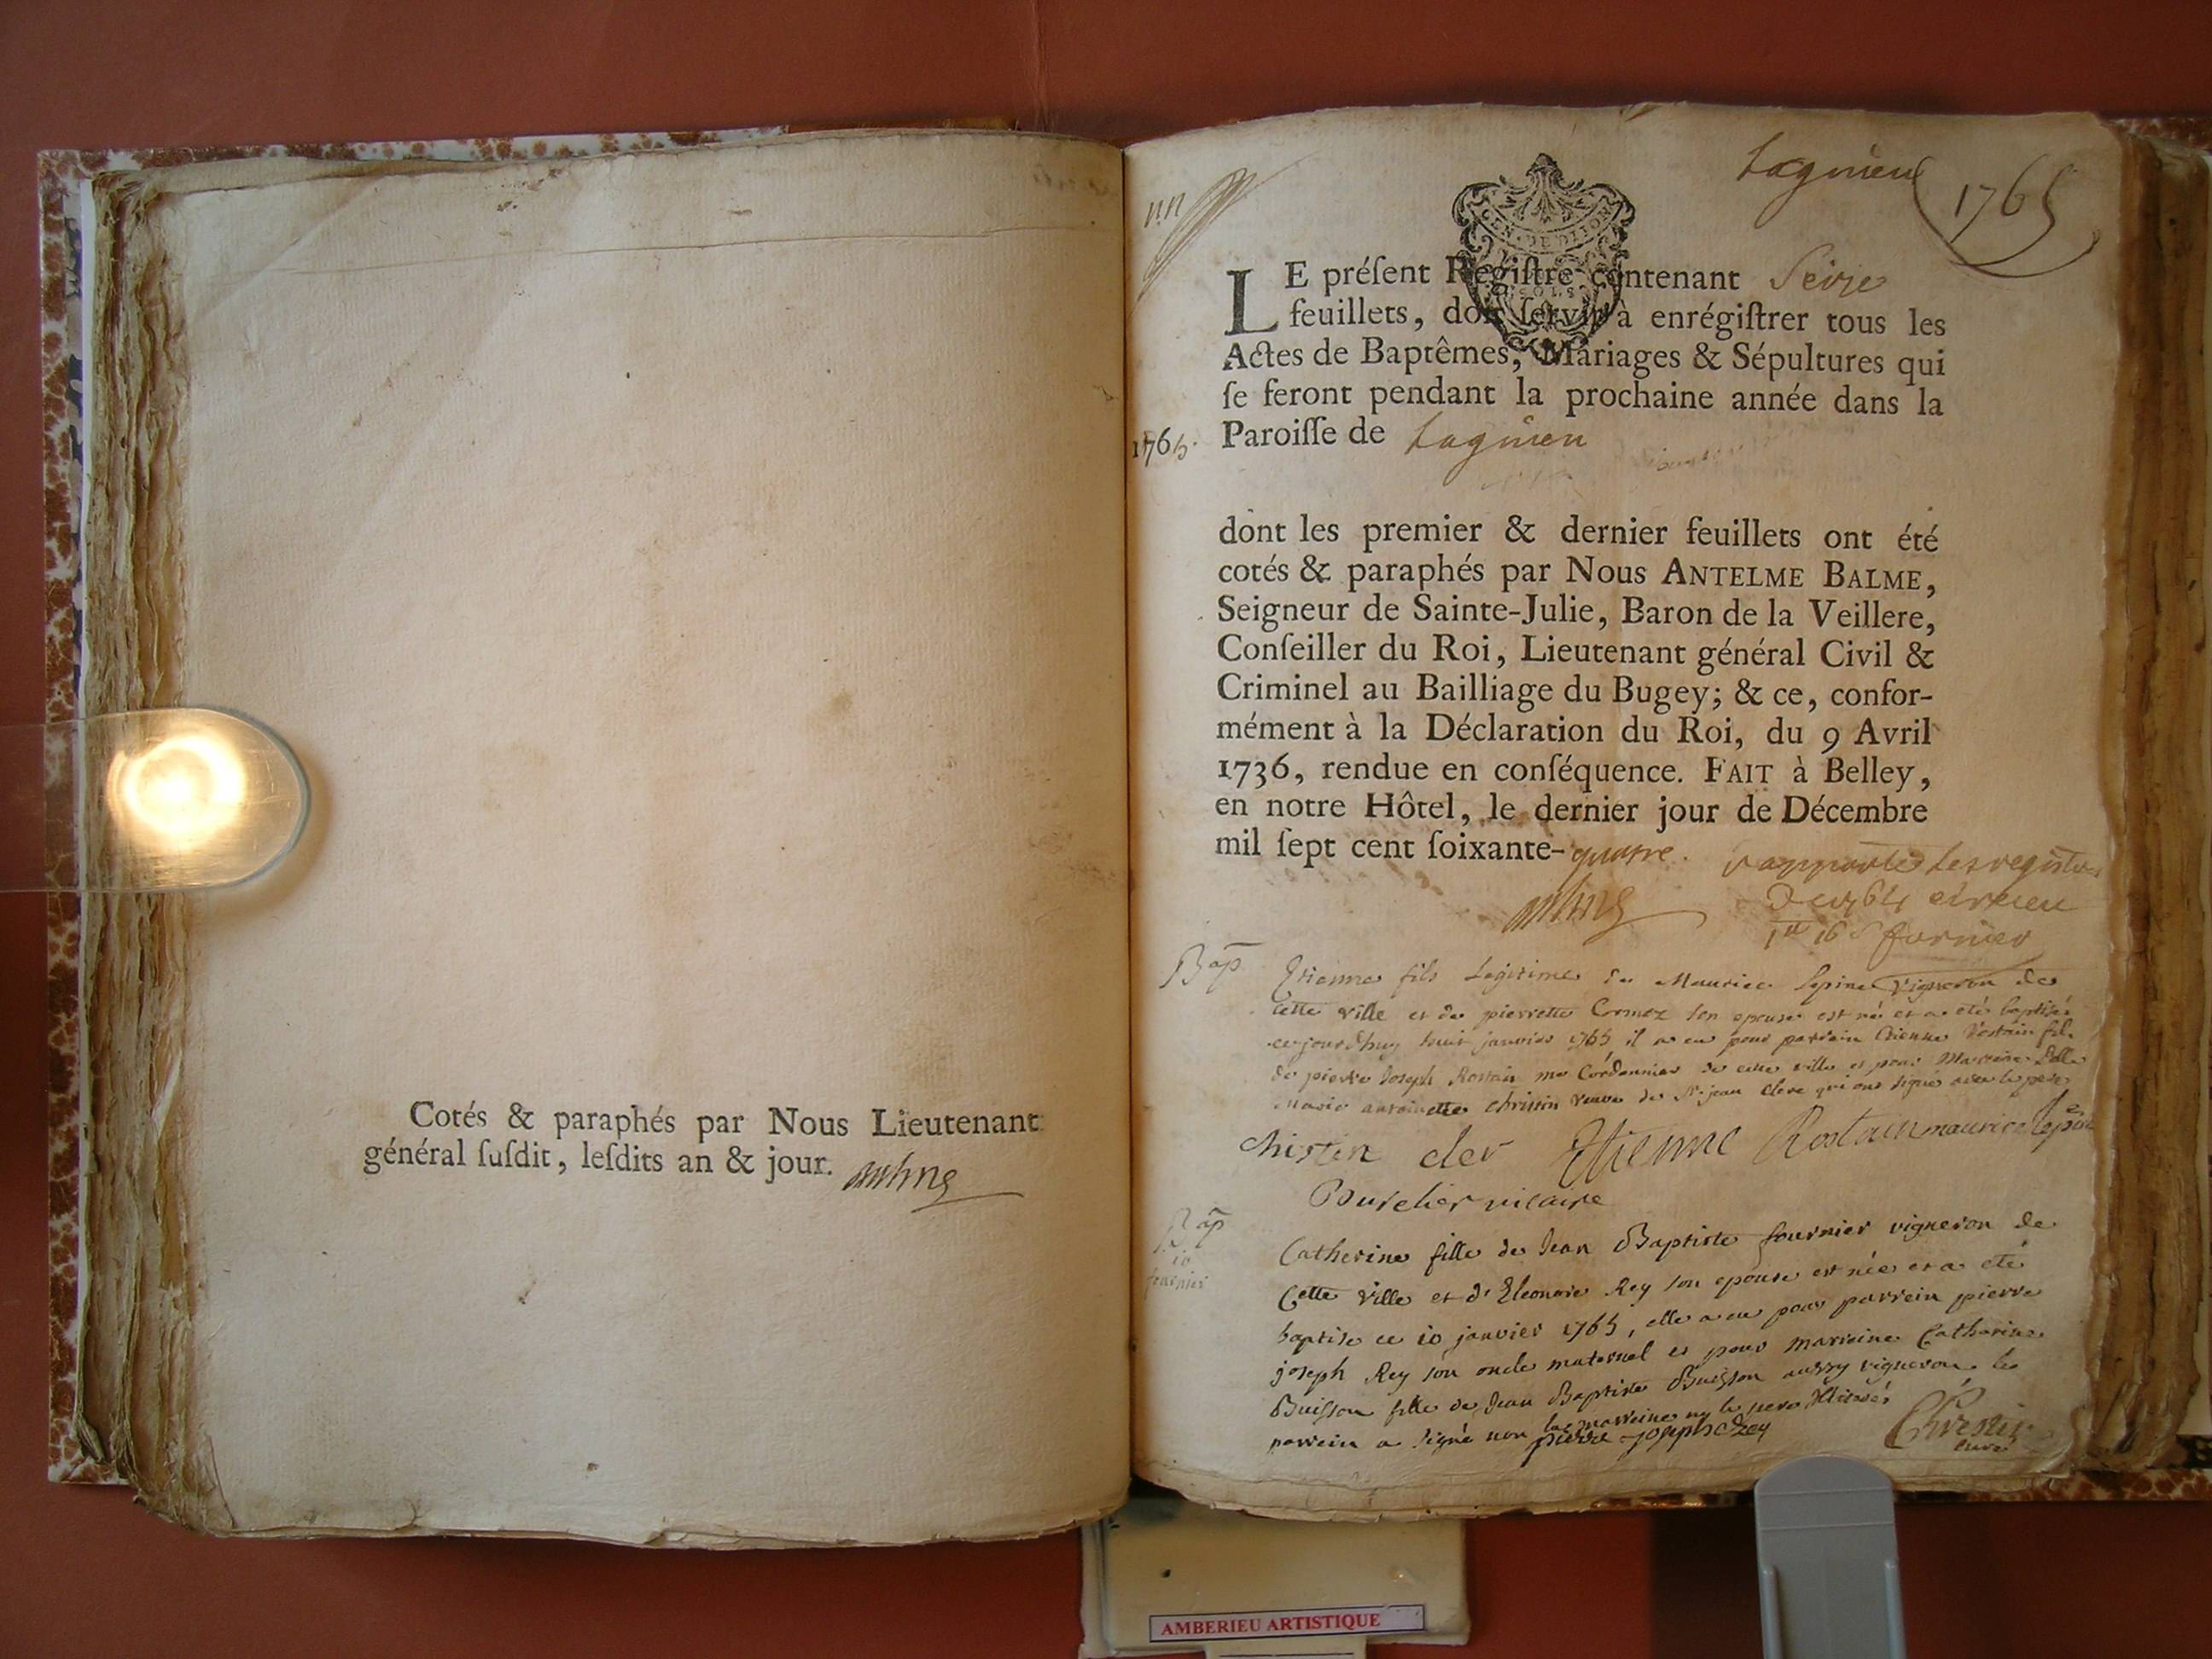 Cotés & paraphés par Nous Lieutenant
général ſuſdit, leſdits an & jour.
Lagnieu
1765
un
GEN. DE DIJON
LE préſent Regiſtre contenant Seize
feuillets, doit ſervir à enrégiſtrer tous les
Actes de Baptêmes, Mariages & Sépultures qui
ſe feront pendant la prochaine année dans la
1765. Paroiſſe de Lagnieu
dont les premier & dernier feuillets ont été
cotés & paraphés par Nous ANTELME BALME,
Seigneur de Sainte-Julie, Baron de la Veillere,
Conſeiller du Roi, Lieutenant général Civil &
Criminel au Bailliage du Bugey; & ce, confor-
mément à la Déclaration du Roi, du 9 Avril
1736, rendue en conſéquence. FAIT à Belley,
en notre Hôtel, le dernier jour de Décembre
mil ſept cent ſoixante-quatre.
rapporté les registres
Bap
Etienne fils legitime de Maurice Lepine vigneron de
cette ville et de pierrette Cormoz son epouse est né et a eté baptisé
ce jourdhuy huit janvier 1765 il a eu pour parrain Etienne Rostain fils
de pierre Joseph Rostain me Cordonnier de cette ville et pour Marreine Dlle
Marie antoinette Christin veuve de Sr jean Clerc qui ont signé avec le pere
christin cler Etienne Rostain maurice lepine
Burelier vicaire
Bap
10
fournier
Catherine fille de Jean Baptiste fournier vigneron de
Cette ville et d'Eleonore Rey son epouse est née et a eté
baptisé ce 10 janvier 1765, elle a eu pour parrein pierre
joseph Rey son oncle maternel et pour marreine Catherine
Buisson fille de Jean Baptiste Buisson aussy vigneron le
parrein a signé non la marreine ny le pere illiterés
pierre joseph Rey
Christin
curé
AMBERIEU ARTISTIQUE